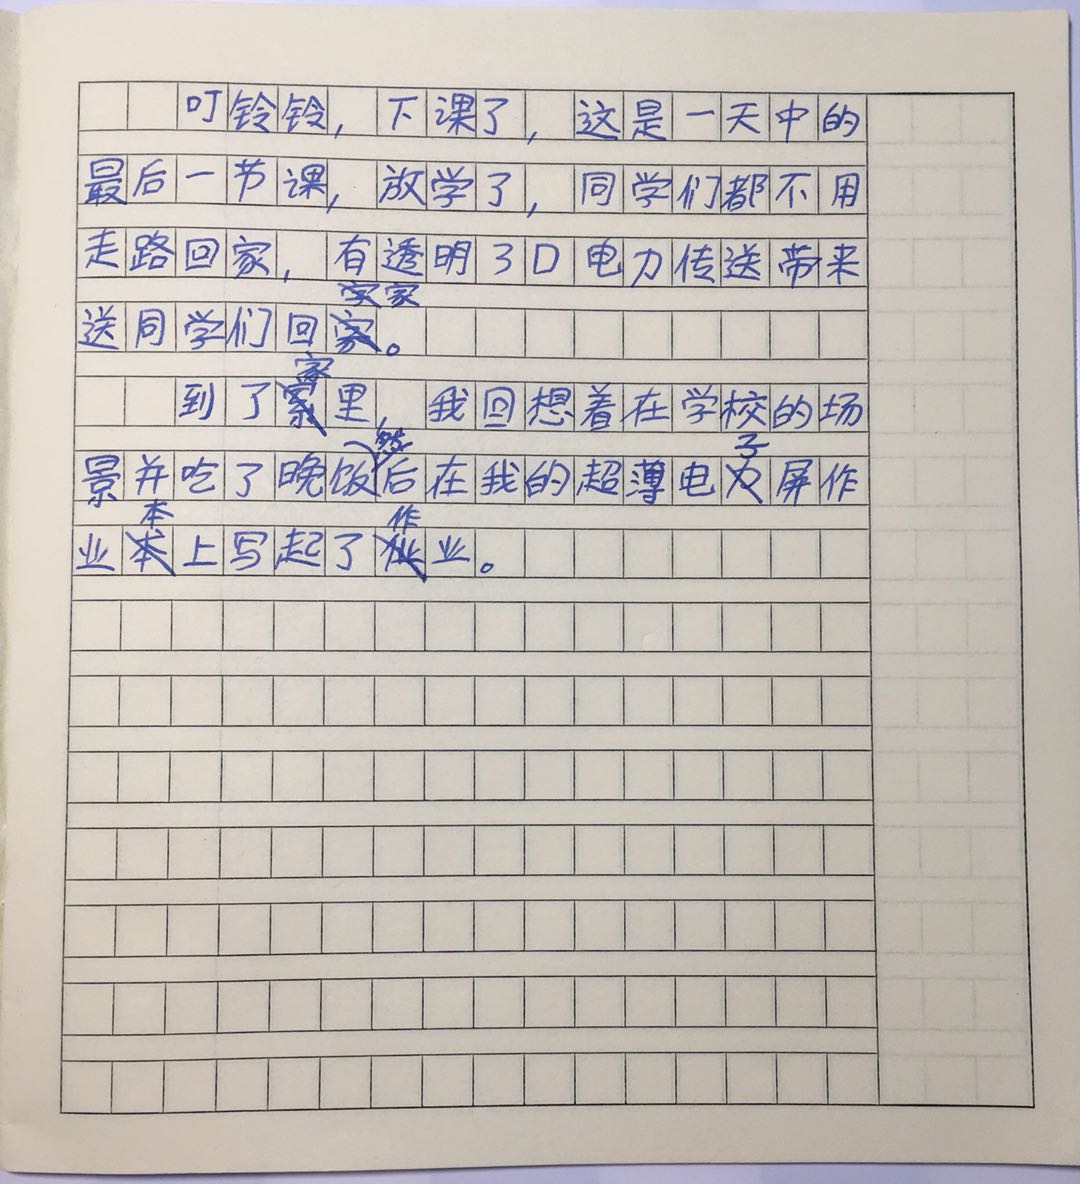 叮铃铃，下课了，这是一天中的
最后一节课，放学了，同学们都不用
走路回家，有透明3D电力传送带来
送同学们回家。
到了家里，我回想着在学校的场
景并吃了晚饭然后在我的超薄电子屏作
业本上写起了作业。